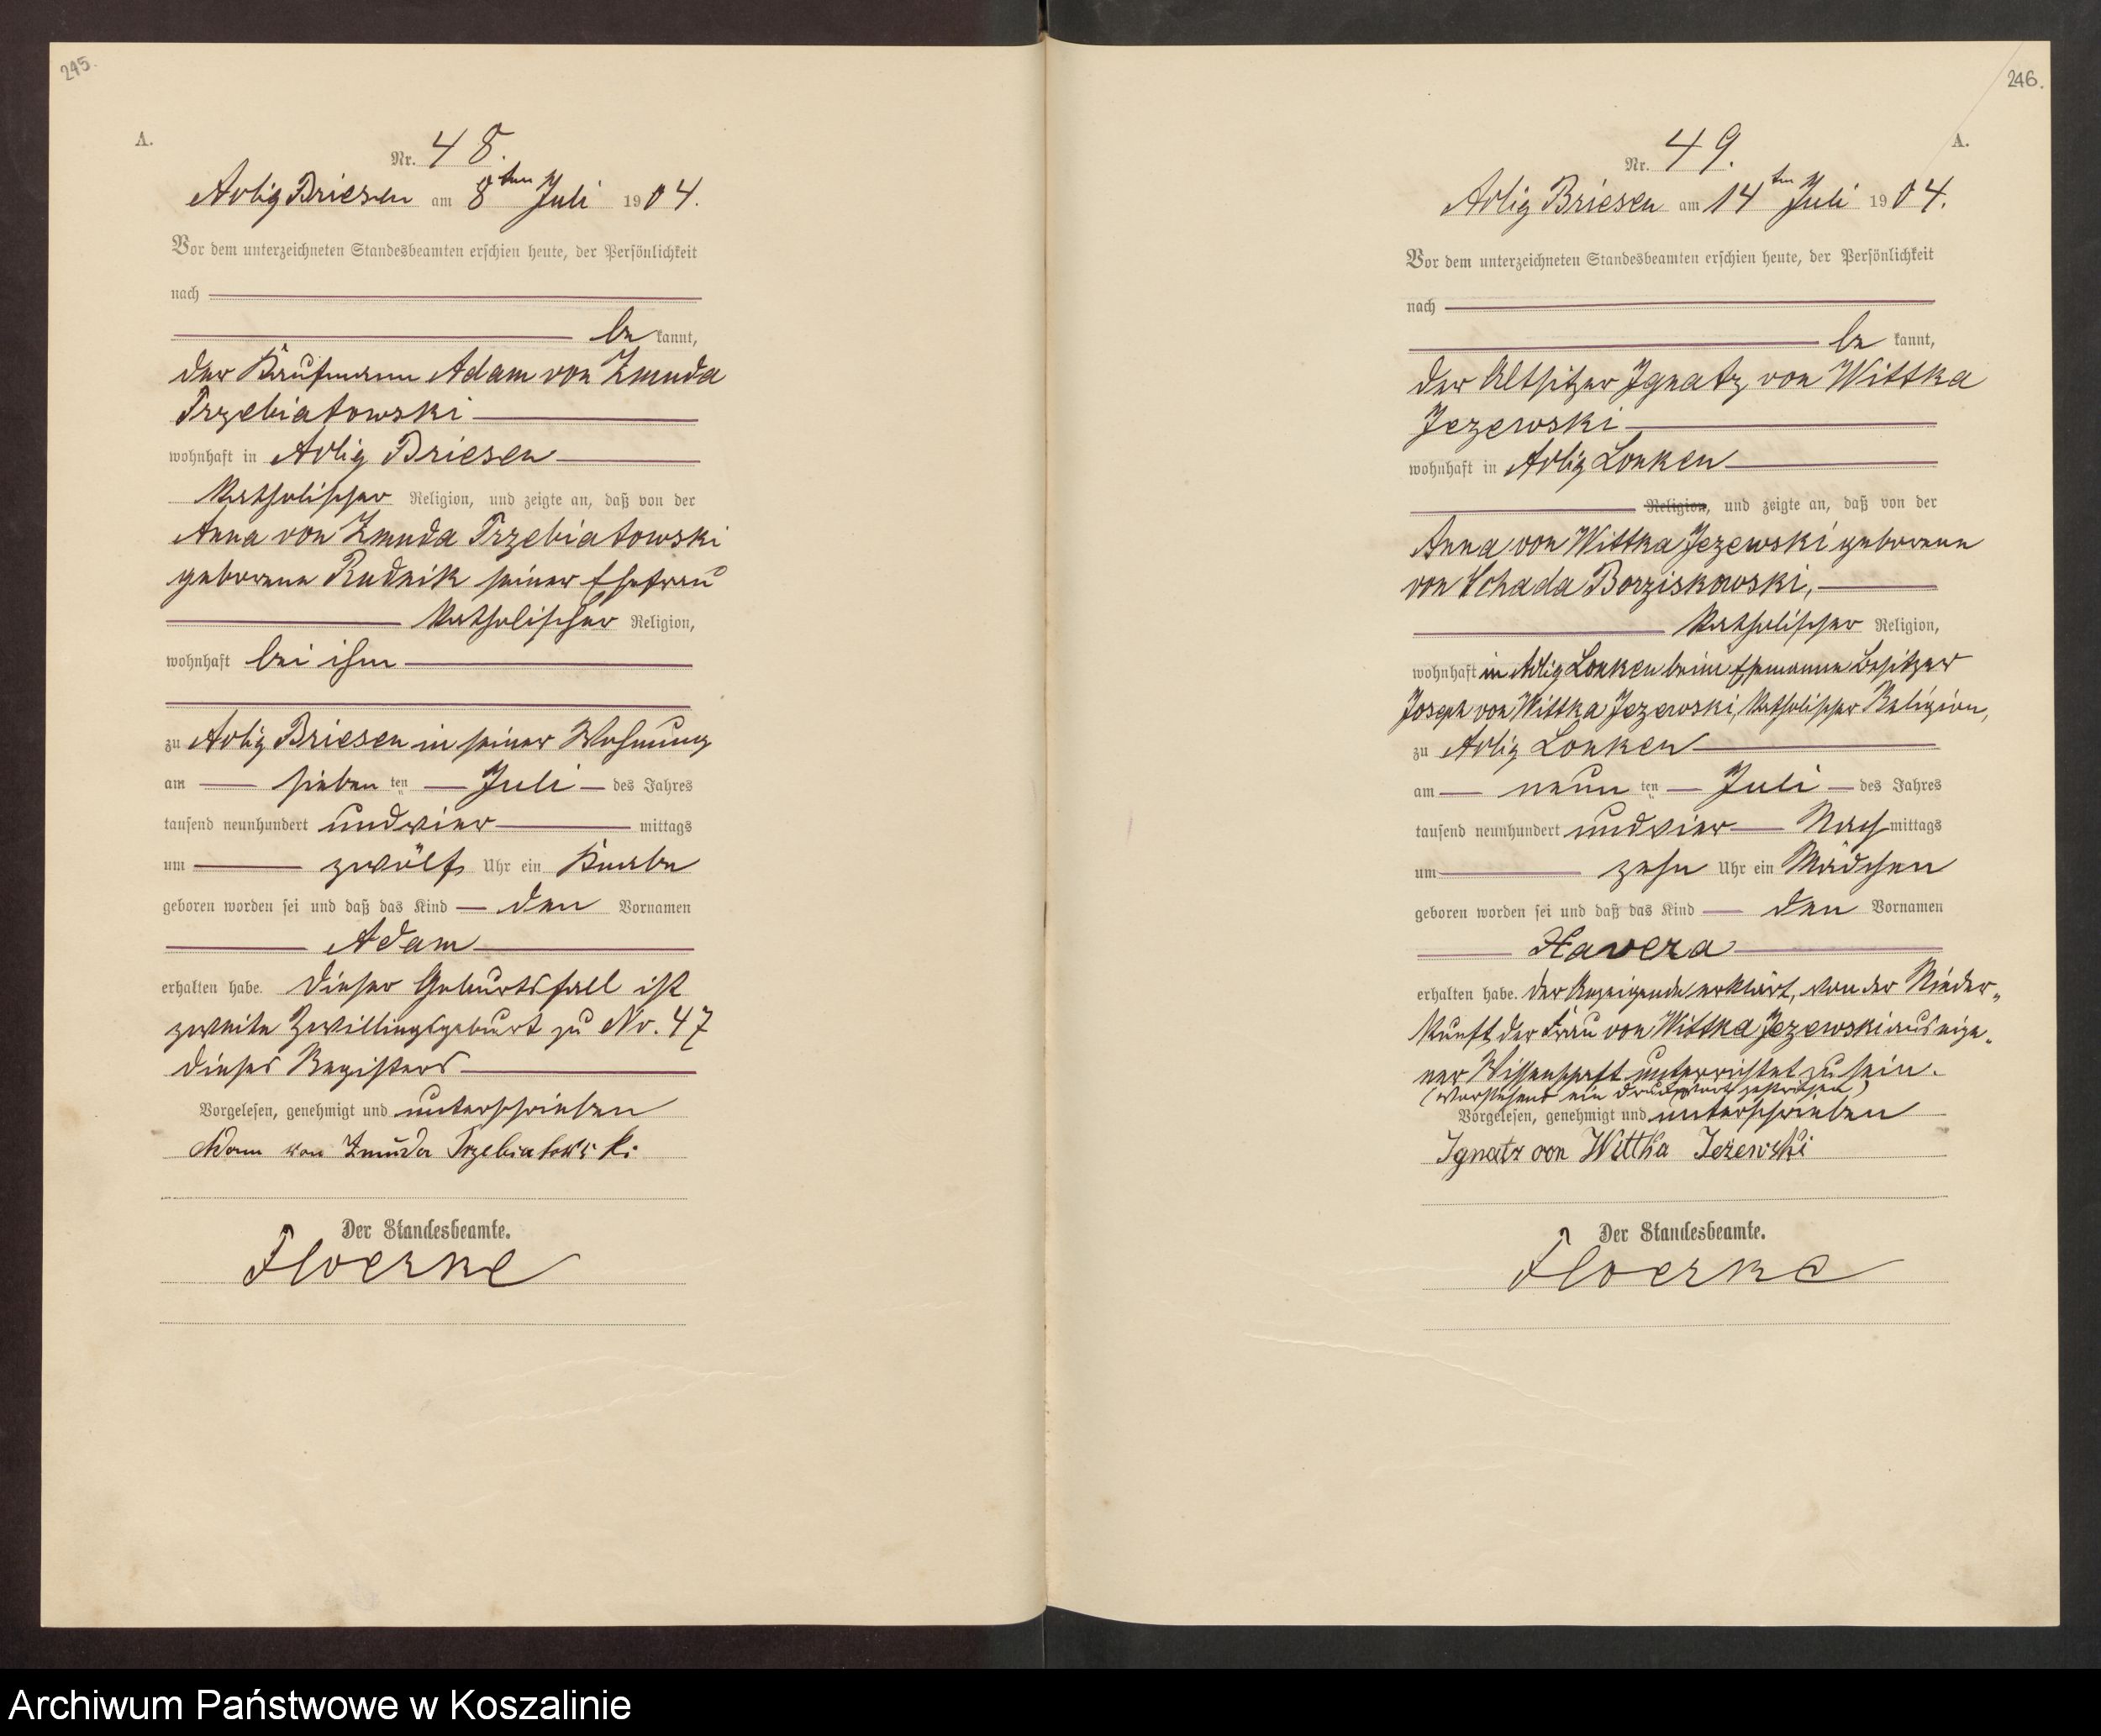 245.
A.
Nr. 48.
Adlig Briesen am 8ten Juli 1904.
Vor dem unterzeichneten Standesbeamten erschien heute, der Persönlichkeit
nach
be kannt,
der Kaufmann Adam von Zmuda
Trzebiatowski
wohnhaft in Adlig Briesen
katholischer Religion, und zeigte an, daß von der
Anna von Zmuda Trzebiatowski
geborenen Rudnik seiner Ehefrau
katholischer Religion,
wohnhaft bei ihm
zu Adlig Briesen in seiner Wohnung
am sieben ten Juli des Jahres
tausend neunhundert undvier mittags
um zwölf Uhr ein Knabe
geboren worden sei und daß das Kind den Vornamen
Adam
erhalten habe. Dieser Geburtsfall ist
zweite Zwillingsgeburt zu No. 47
dieses Registers
Vorgelesen, genehmigt und unterschrieben
Adam von Zmuda Trzebiatowski
Der Standesbeamte.
Floerke
246.
A.
Nr. 49.
Adlig Briesen am 14ten Juli 1904.
Vor dem unterzeichneten Standesbeamten erschien heute, der Persönlichkeit
nach
be kannt,
der Altsitzer Ignatz von Wittka
Jezewski
wohnhaft in Adlig Lonken
Religion, und zeigte an, daß von der
Anna von Wittka Jezewski geborenen
von Schada Borziskowski,
katholischer Religion,
wohnhaft in Adlig Lonken beim Ehemanne Besitzer
Joseph von Wittka Jezewski, katholischer Religion,
zu Adlig Lonken
am neun ten Juli des Jahres
tausend neunhundert undvier Nach mittags
um zehn Uhr ein Mädchen
geboren worden sei und daß das Kind den Vornamen
Havera
erhalten habe. Der Anzeigende erklärt, von der Nieder„
kunft der Frau von Wittka Jezewski aus eige„
ner Wissenschaft unterrichtet zu sein.
(Vorstehend ein Druckwort gestrichen)
Vorgelesen, genehmigt und unterschrieben
Ignatz von Wittka Jeżewski
Der Standesbeamte.
Floerke
Archiwum Państwowe w Koszalinie